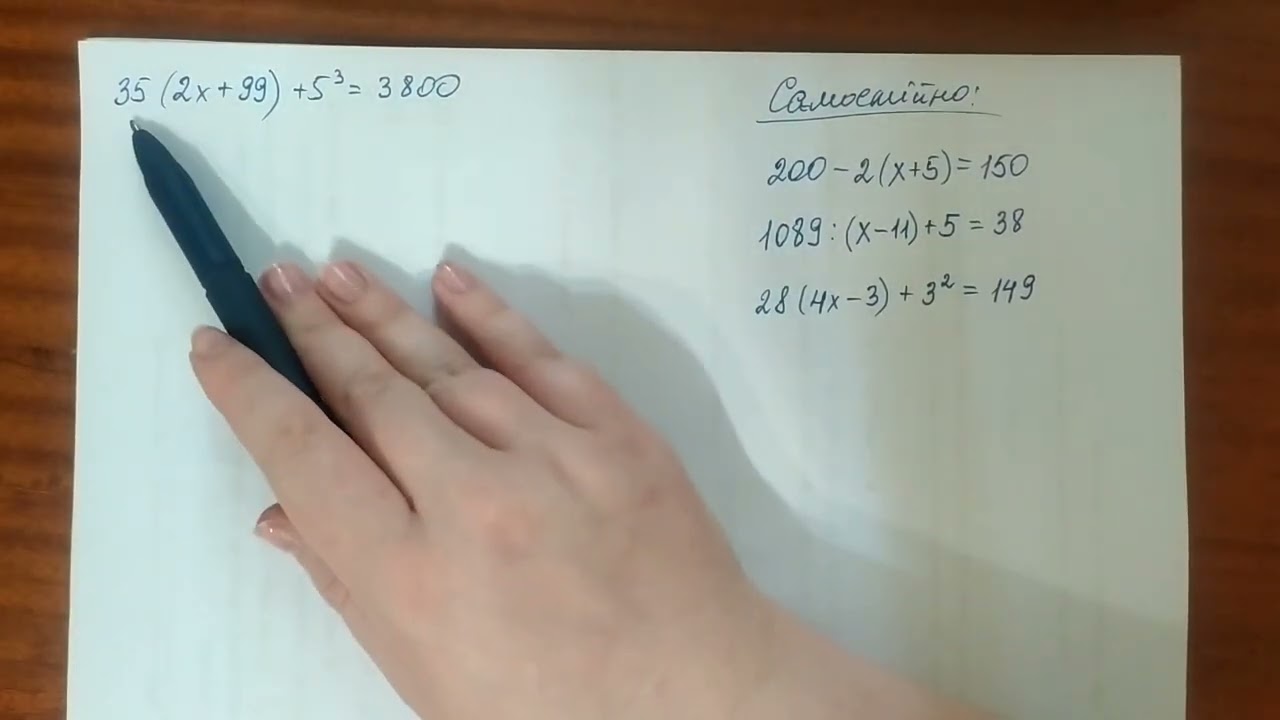 35 (2x + 99) + 5³ = 3800
Самостійно:
200 - 2(x+5) = 150
1089 : (x-11) + 5 = 38
28 (4x - 3) + 3² = 149